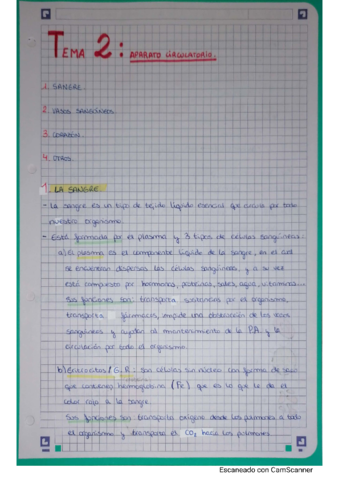 TEMA 2: APARATO CIRCULATORIO.
1. SANGRE.
2. VASOS SANGUÍNEOS.
3. CORAZÓN.
4. OTROS.
1. LA SANGRE.
- La sangre es un tipo de tejido líquido esencial que circula por todo
nuestro organismo.
- Está formada por el plasma y 3 tipos de células sanguíneas:
a) El plasma es el componente líquido de la sangre, en el cual
se encuentran dispersas las células sanguíneas, y a su vez
está compuesto por hormonas, proteínas, sales, agua, vitaminas...
Sus funciones son: transporta sustancias por el organismo,
transporta fármacos, impide una de los vasos
sanguíneos y ayudan al mantenimiento de la P.A. y la
circulación por todo el organismo.
b) Eritrocitos / G.R: Son células sin núcleo con forma de
que contienen hemoglobina (Fe) que es lo que le da el
color rojo a la sangre.
Sus funciones son: transporta oxígeno desde los pulmones a todo
el organismo y transporta el CO2 hacia los pulmones.
Escaneado con CamScanner